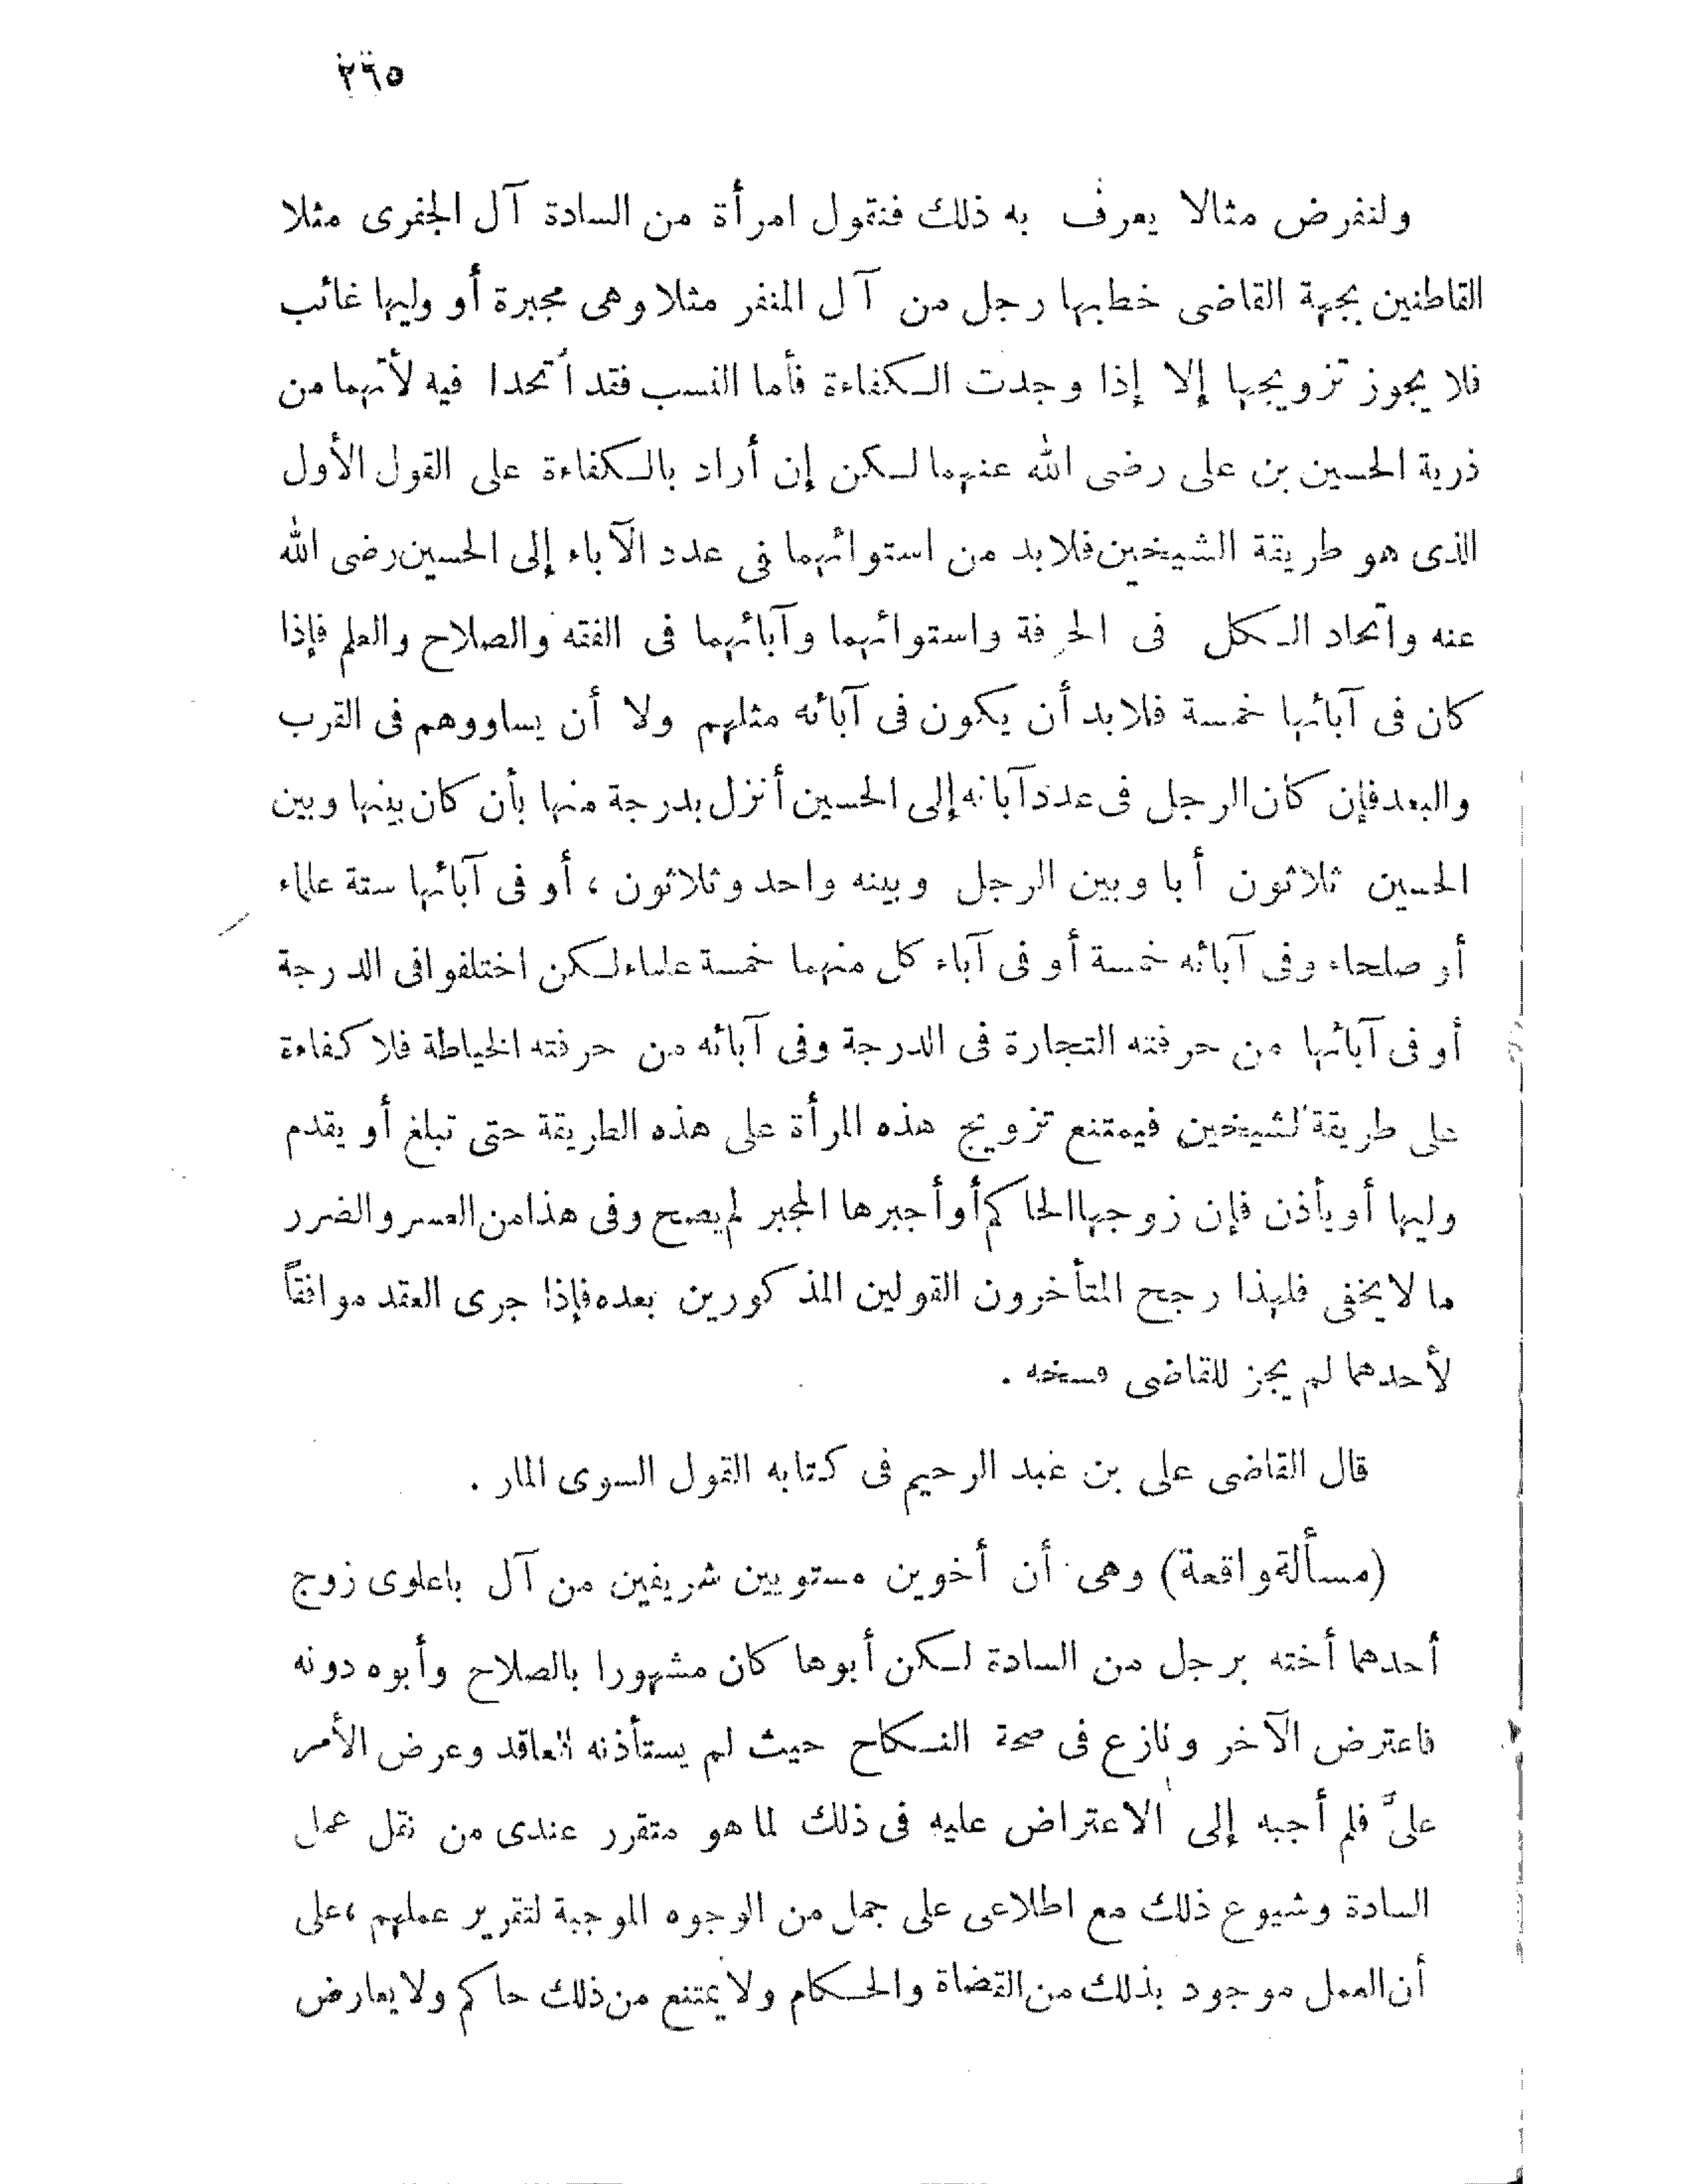 ٢٦٥
ولنفرض مثالا يعرف به ذلك فنقول امرأة من السادة آل الجفرى مثلا
القاطنين بجهة القاضى خطبها رجل من آل المنفر مثلا وهى مجبرة أو وليها غائب
فلا يجوز تزويجها إلا إذا وجدت الكفاءة فأما النسب فقد أتحدا فيه لأنهما من
ذرية الحسين بن على رضى الله عنهما لكن إن أراد بالكفاءة على القول الأول
الذى هو طريقة الشيخين فلا بد من استوائهما فى عدد الآباء إلى الحسين رضى الله
عنه واتحاد الكل فى الحرفة واستوائهما وآبائهما فى الفقه والصلاح والعلم فإذا
كان فى آبائها خمسة فلا بد أن يكون فى آبائه مثلهم ولا أن يساووهم فى القرب
والبعد فإن كان الرجل فى عدد آبائه إلى الحسين أنزل بدرجة منها بأن كان بينها وبين
الحسين ثلاثون أبا وبين الرجل وبينه واحد وثلاثون ، أو فى آبائها ستة علماء
أو صلحاء وفى آبائه خمسة أو فى آباء كل منهما خمسة علماء لكن اختلفوا فى الدرجة
أو فى آبائها من حرفته التجارة فى الدرجة وفى آبائه من حرفته الخياطة فلا كفاءة
على طريقة لشيخين فيمتنع تزويج هذه المرأة على هذه الطريقة حتى تبلغ أو يقدم
وليها أو يأذن فإن زوجها الحاكم أو أجبرها المجبر لم يصح وفى هذا من العسر والضرر
ما لا يخفى فلهذا رجح المتأخرون القولين المذكورين بعده فإذا جرى العقد موافقاً
لأحدهما لم يجز للقاضى فسخه .
قال القاضى على بن عبد الرحيم فى كتابه القول السوى المار .
(مسألة واقعة) وهى أن أخوين مستويين شريفين من آل باعلوى زوج
أحدهما أخته برجل من السادة لكن أبوها كان مشهورا بالصلاح وأبوه دونه
فاعترض الآخر ونازع فى صحة النكاح حيث لم يستأذنه العاقد وعرض الأمر
علىّ فلم أجبه إلى الاعتراض عليه فى ذلك لما هو متقرر عندى من نقل عمل
السادة وشيوع ذلك مع اطلاعى على جمل من الوجوه الموجبة لتقرير عملهم ، على
أن العمل موجود بذلك من القضاة والحكام ولا يمتنع من ذلك حاكم ولا يعارض